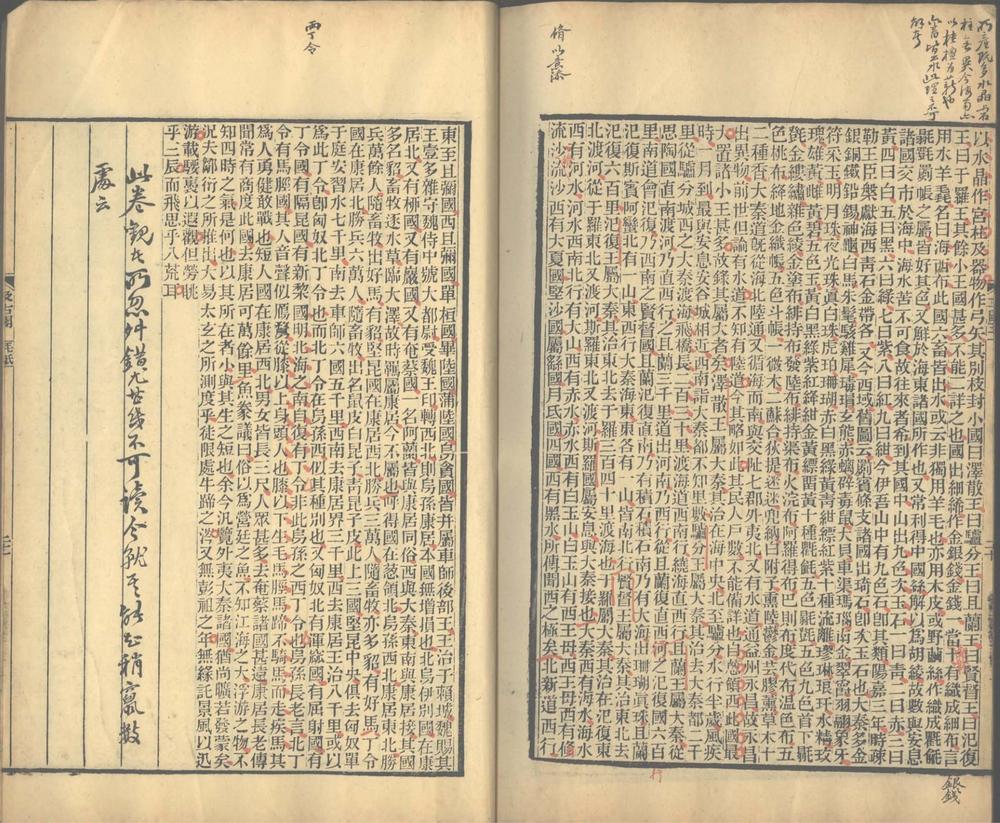 所產既多水晶
以水晶作宮柱及器物作弓矢其別枝封小國曰澤散王曰驢分王曰且蘭王曰賢督王曰汜復
王曰于羅王其餘小王國甚多不能一一詳之也國出細絺作金銀錢金錢一當十有織成細布言
用水羊毳名曰海西布此國六畜皆出水或云非獨用羊毛也亦用木皮或野繭絲作織成氍毹
毾㲪罽帳之屬皆好其色又鮮於海東諸國所作也又常利得中國絲解以爲胡綾故數與安息
諸國交市於海中海水苦不可食故往來者希到其國中山出九色次玉石一曰靑二曰赤三曰
黃四曰白五曰黑六曰綠七曰紫八曰紅九曰紺今伊吾山中有九色石卽其類陽嘉三年時疎
勒王臣槃獻海西靑石金帶各一又今西域舊圖云罽賓條支諸國出琦石卽次玉石也大秦多金
銀銅鐵鉛錫神龜白馬朱髦駭雞犀瑇瑁玄熊赤螭辟毒鼠大貝車渠瑪瑙南金翠爵羽翮象牙
符采玉明月珠夜光珠眞白珠虎珀珊瑚赤白黑綠黃靑紺縹紅紫十種流離璆琳琅玕水精玫
瑰雄黃雌黃碧五色玉黃白黑綠紫紅絳紺金黃縹留黃十種氍毹五色毾㲪五色九色首下毾
㲪金縷繡雜色綾金塗布緋持布發陸布緋持渠布火浣布阿羅得布巴則布度代布溫色布五
色桃布絳地金織帳五色斗帳一微木二蘇合狄提迷迷兜納白附子薰陸鬱金芸膠薰草木十
二種香大秦道旣從海北陸通又循海而南與交阯七郡外夷北又有水道通益州永昌故永昌
出異物前世但論有水道不知有陸道今其略如此其民人戶數不能備詳也自葱領西此國最
大置諸小王甚多故錄其屬大者矣澤散王屬大秦其治在海中央北至驢分水行半歲風疾
時一月到最與安息安谷城相近西南詣大秦都不知里數驢分王屬大秦其治去大秦都二千
里從驢分城西之大秦渡海飛橋長二百三十里渡海道西南行繞海直西行且蘭王屬大秦從
思陶國直南渡河乃直西行之且蘭三千里道出河南乃西行從且蘭復直西行之汜復國六百
里南道會汜復乃西南之賢督國且蘭汜復直南乃有積石積石南乃有大海出珊瑚眞珠且蘭
汜復斯賓阿蠻北有一山東西行大秦海東東各有一山皆南北行賢督王屬大秦其治東北去
汜復六百里汜復王屬大秦其治東北去于羅三百四十里渡海也于羅屬大秦其治在汜復東
北渡河從于羅東北又渡河斯羅東北又渡河斯羅國屬安息與大秦接也大秦西有海水海水
西有河水河水西南北行有大山西有赤水赤水西有白玉山白玉山有西王母西王母西有脩
流沙流沙西有大夏國堅沙國屬繇國月氏國四國西有黑水所傳聞西之極矣北新道西行
銀錢
行
東至且彌國西且彌國單桓國畢陸國蒲陸國烏貪國皆并屬車師後部王王治于賴城魏賜其
王壹多雜守魏侍中號大都尉受魏王印轉西北則烏孫康居本國無增損也北烏伊別國在康
居北又有柳國又有巖國又有奄蔡國一名阿蘭皆與康居同俗西與大秦東南與康居接其國
多名貂畜牧逐水草臨大澤故時羈屬康居今不屬也呼得國在葱領北烏孫西北康居東北勝
兵萬餘人隨畜牧出好馬有貂堅昆國在康居西北勝兵三萬人隨畜牧亦多貂有好馬丁令
國在康居北勝兵六萬人隨畜牧出名鼠皮白昆子靑昆子皮此上三國堅昆中央俱去匈奴單
于庭安習水七千里南去車師六國五千里西南去康居界三千里西去康居王治八千里或以
爲此丁令卽匈奴北丁令也而北丁令在烏孫西似其種別也又匈奴北有渾窳國有屈射國有
丁令國有隔昆國有新棃國明北海之南自復有丁令非此烏孫之西丁令也烏孫長老言北丁
令有馬脛國其人音聲似鴈鶩從膝以上身頭人也膝以下生毛馬脛馬蹄不騎馬而走疾馬其
爲人勇健敢戰也短人國在康居西北男女皆長三尺人眾甚多去奄蔡諸國甚遠康居長老傳
聞常有商度此國去康居可萬餘里魚豢議曰俗以爲營廷之魚不知江海之大浮游之物不
知四時之氣是何也以其所在者小與其生之短也余今汎覽外夷大秦諸國猶尚曠若發蒙矣
況夫鄒衍之所推出大易太玄之所測度乎徒限處牛蹄之涔又無彭祖之年無緣託景風以迅
游載騕褭以遐觀但勞眺
乎三辰而飛思乎八荒耳
此卷